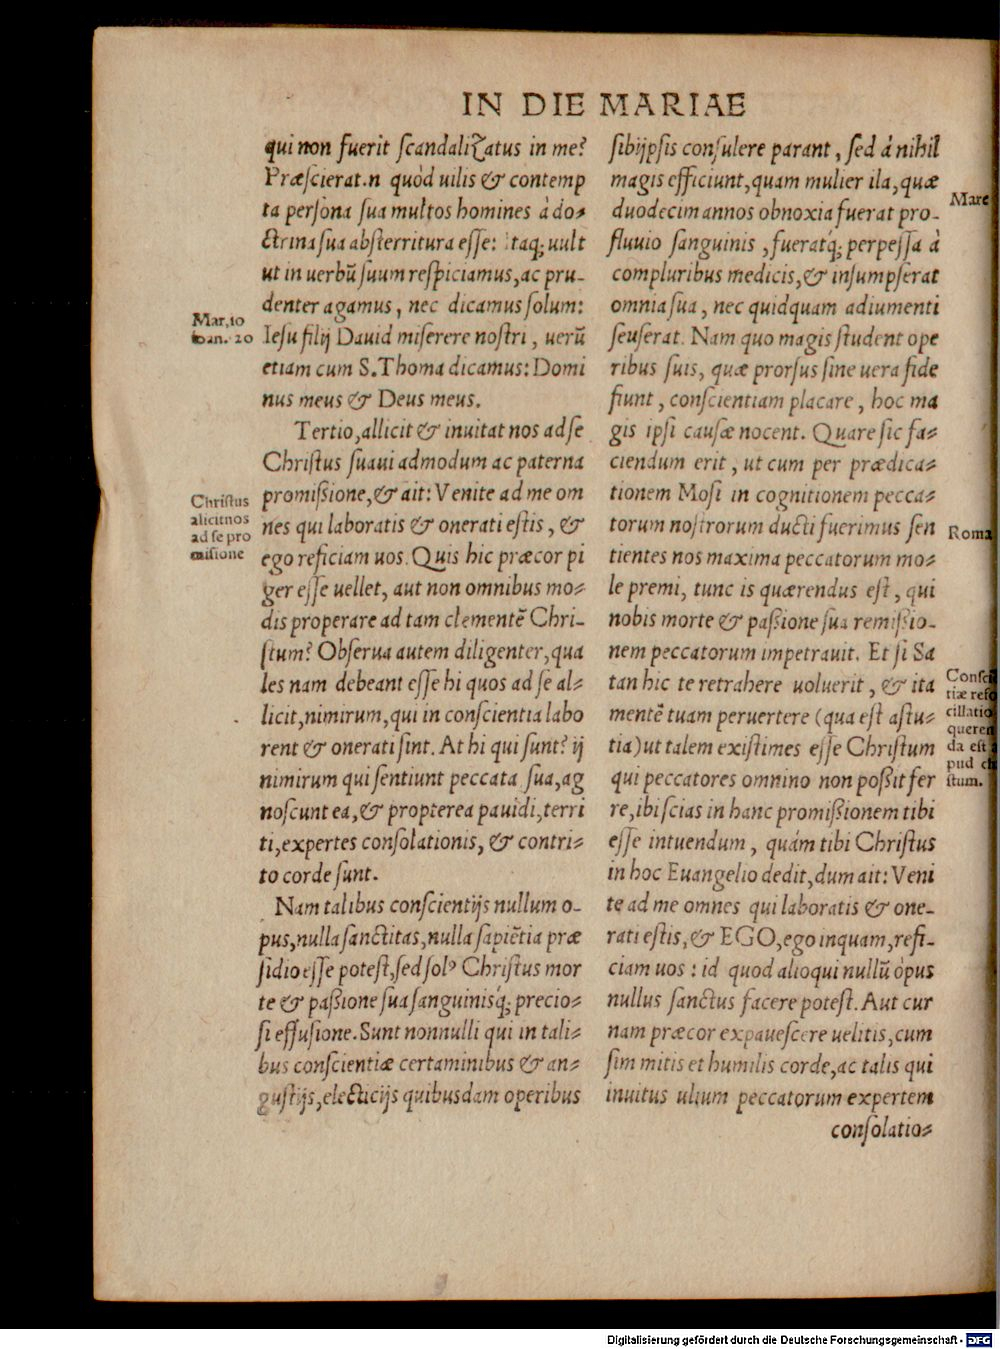 IN DIE MARIAE
qui non fuerit ſcandaliZatus in me?
Præſcierat.n quòd uilis & contemp
ta perſona ſua multos homines à do⸗
ctrina ſua abſterritura eſſe: itaq; uult
ut in uerbū ſuum reſpiciamus, ac pru-
denter agamus, nec dicamus ſolum:
Ieſu filij Dauid miſerere noſtri, uerū
etiam cum S. Thoma dicamus: Domi
nus meus & Deus meus.
Tertio, allicit & inuitat nos ad ſe
Chriſtus ſuaui admodum ac paterna
promiſsione, & ait: Venite ad me om
nes qui laboratis & onerati eſtis, &
ego reficiam uos. Quis hic præcor pi
ger eſſe uellet, aut non omnibus mo⸗
dis properare ad tam clementē Chri-
ſtum? Obſerua autem diligenter, qua
les nam debeant eſſe hi quos ad ſe al⸗
licit, nimirum, qui in conſcientia labo
rent & onerati ſint. At hi qui ſunt? ij
nimirum qui ſentiunt peccata ſua, ag
noſcunt ea, & propterea pauidi, terri
ti, expertes conſolationis, & contri⸗
to corde ſunt.
Nam talibus conſcientijs nullum o-
pus, nulla ſanctitas, nulla ſapiētia præ
ſidio eſſe poteſt, ſed ſolꝰ Chriſtus mor
te & paſsione ſua ſanguinisq́; precio⸗
ſi effuſione. Sunt nonnulli qui in tali⸗
bus conſcientiæ certaminibus & an⸗
guſtijs, electicijs quibusdam operibus
Mar,10
Ioan. 20
Chriſtus
alicit nos
ad ſe pro
miſione
ſibijpſis conſulere parant, ſed à nihil
magis efficiunt, quam mulier ila, quæ
duodecim annos obnoxia fuerat pro-
fluuio ſanguinis, fueratq́; perpeſſa à
compluribus medicis, & inſumpſerat
omnia ſua, nec quidquam adiumenti
ſeuſerat. Nam quo magis ſtudent ope
ribus ſuis, quæ prorſus ſine uera fide
fiunt, conſcientiam placare, hoc ma
gis ipſi cauſæ nocent. Quare ſic fa⸗
ciendum erit, ut cum per prædica⸗
tionem Moſi in cognitionem pecca⸗
torum noſtrorum ducti fuerimus ſen
tientes nos maxima peccatorum mo⸗
le premi, tunc is quærendus eſt, qui
nobis morte & paſsione ſua remiſsio-
nem peccatorum impetrauit. Et ſi Sa
tan hic te retrahere uoluerit, & ita
mentē tuam peruertere (qua eſt aſtu⸗
tia) ut talem exiſtimes eſſe Chriſtum
qui peccatores omnino non poſsit fer
re, ibi ſcias in hanc promiſsionem tibi
eſſe intuendum, quám tibi Chriſtus
in hoc Euangelio dedit, dum ait: Veni
te ad me omnes qui laboratis & one-
rati eſtis, & EGO, ego inquam, refi-
ciam uos: id quod alioqui nullū òpus
nullus ſanctus facere poteſt. Aut cur
nam præcor expaueſcere uelitis, cum
ſim mitis et humilis corde, ac talis qui
inuitus ullum peccatorum expertem
conſolatio⸗
Marc
Roma
Conſci
tiæ refo
cillatio
queren
da eſt a
pud ch
ſtum.
Digitalisierung gefördert durch die Deutsche Forschungsgemeinschaft - DFG